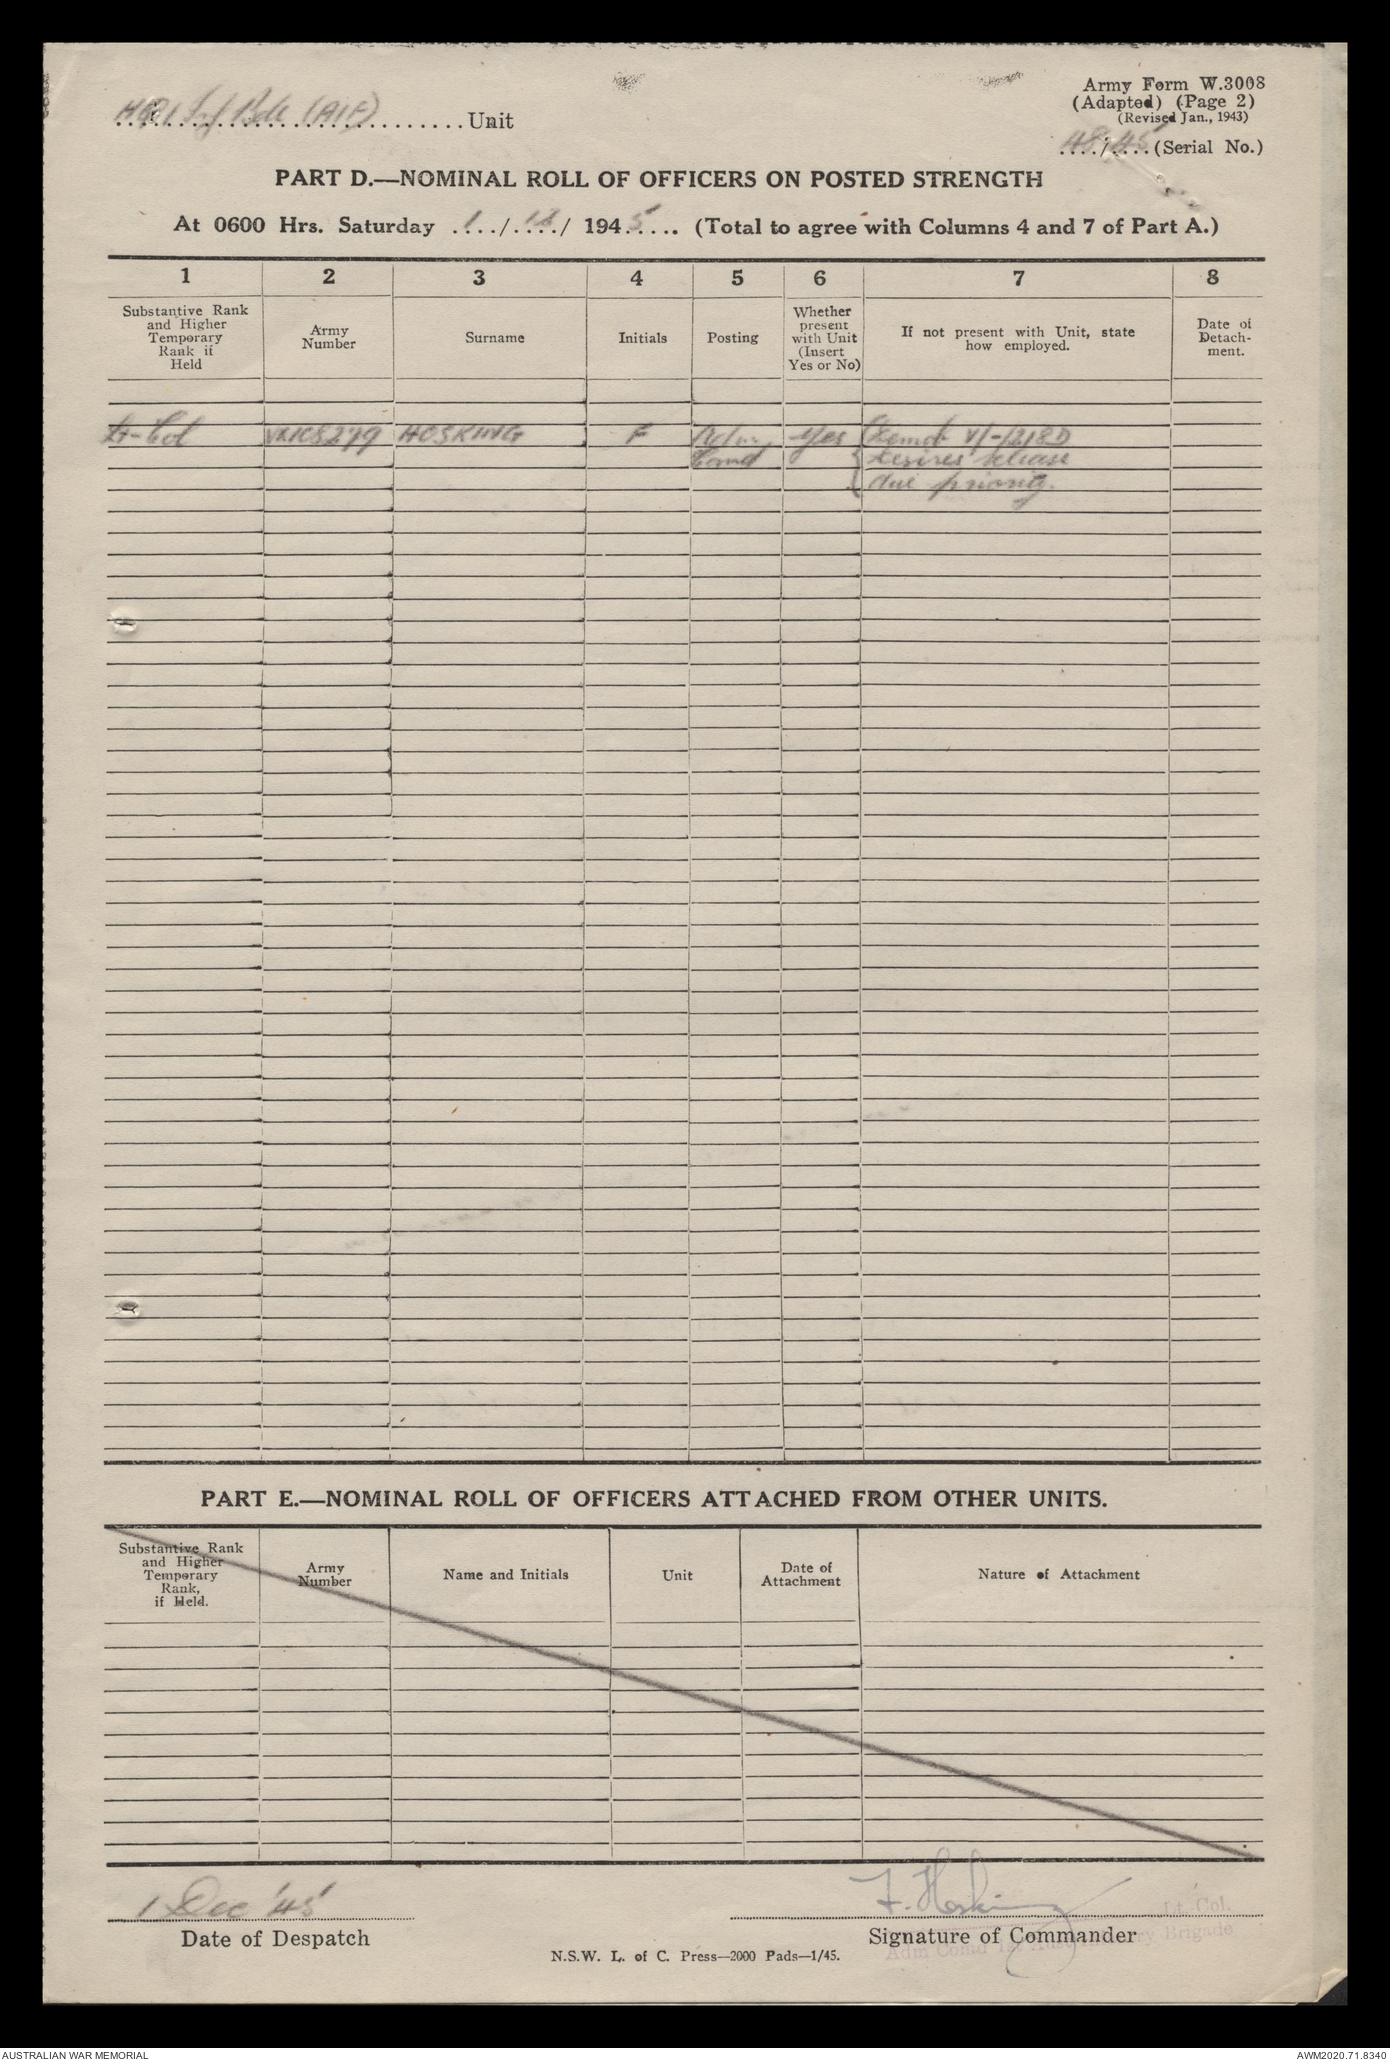 Army Form W.3008
(Adapted) (Page 2)
(Revised Jan., 1943)
HQ 1 Inf Bde (AIF) Unit
48/45 (Serial No.)
PART D.—NOMINAL ROLL OF OFFICERS ON POSTED STRENGTH
At 0600 Hrs. Saturday 1/12/1945 (Total to agree with Columns 4 and 7 of Part A.)
1 2 3 4 5 6 7 8
Substantive Rank and Higher Temporary Rank if Held
Army Number
Surname
Initials
Posting
Whether present with Unit (Insert Yes or No)
If not present with Unit, state how employed.
Date of Detach-ment.
Lt-Col VX108279 HOSKING F Adm Yes Demob V/-/218D
Comd desires release
due priority.
PART E.—NOMINAL ROLL OF OFFICERS ATTACHED FROM OTHER UNITS.
Substantive Rank and Higher Temporary Rank, if Held.
Army Number
Name and Initials
Unit
Date of Attachment
Nature of Attachment
1 Dec '45
F. Hosking
Lt. Col.
Date of Despatch
Signature of Commander
Adm Comd 1st Aust Infantry Brigade
N.S.W. L. of C. Press—2000 Pads—1/45.
AUSTRALIAN WAR MEMORIAL
AWM2020.71.8340